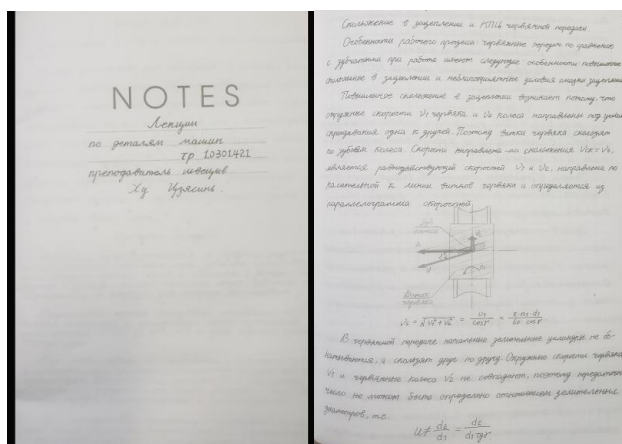 NOTES
Лекции
по деталям машин
гр 10301421
преподаватель швецив
Ху Цзясинь.
Скольжение в зацеплении и КПД червячной передачи
Особенности рабочего процесса: червячные передач по сравнению
с зубчатыми при работе имеют следующие особенности повышенное
скольжение в зацеплении и неблагоприятные условия смазки зацепления
Повышенное скольжение в зацеплении возникает потому, что
окружные скорости V1 червяка и V2 колеса направлены под углом
скрещивания одна к другой. Поэтому витки червяка скользят
по зубьям колеса. Скорость направлена скольжения Vск=Vs,
является равнодействующей скоростей V1 и V2, направлена по
касательной к линии витков червяка и определяется из
параллелограмма скоростей
Виток
червяка
Vs = √V1² + V2² = V1/cosγ = π·n1·d1/60·cosγ
В червячной передаче начальные делительные цилиндры не об-
катываются, а скользят друг по другу. Окружные скорости червяка
V1 и червячные колеса V2 не совпадают, поэтому передаточное
число не может быть определено отношением делительных
диаметров, т.е.
U ≠ d2/d1 = d2/d1tgγ